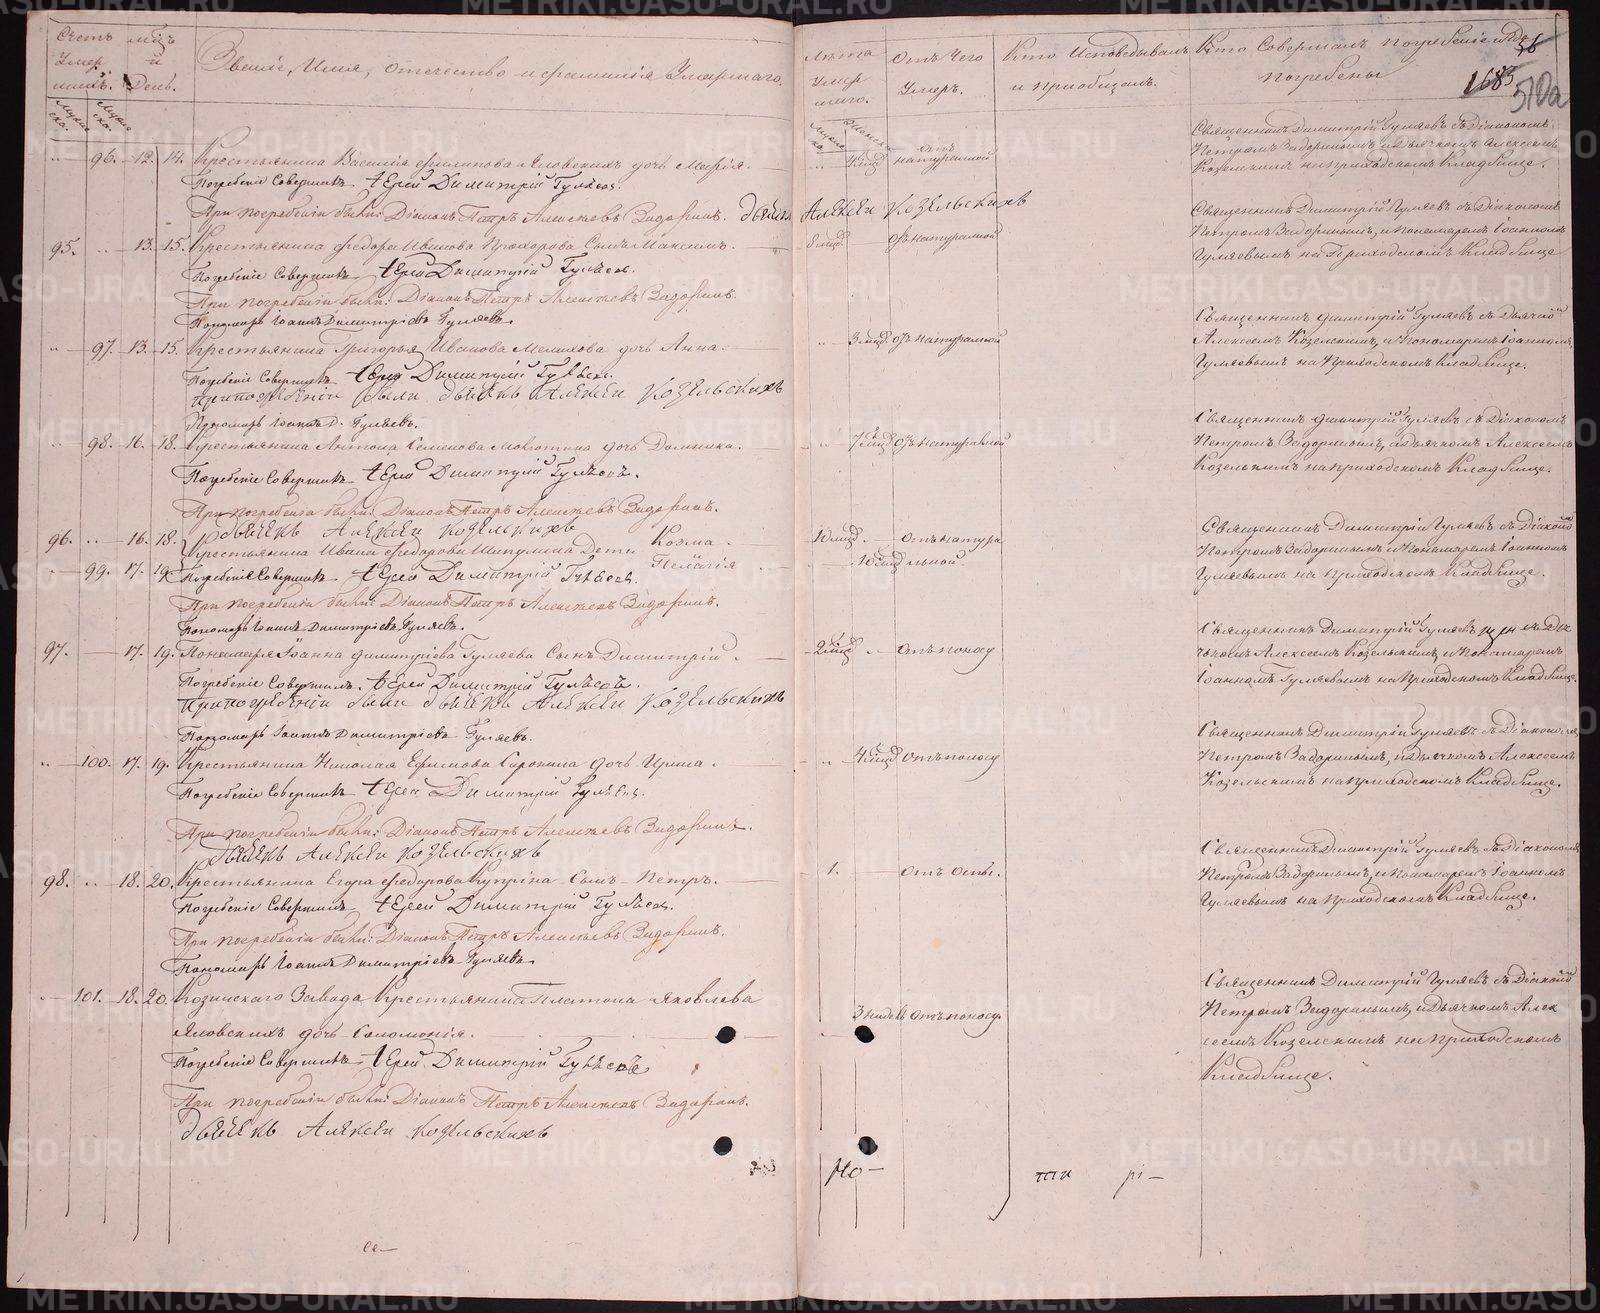 Счетъ умер шихъ.
Мѣсяцъ и День.
Званіе, Имя, отечество и фамилія Умершаго.
Лѣта Умер шаго.
Отъ Чего Умеръ.
Кто Исповѣдывалъ и пріобщалъ.
Кто Совершалъ погребеніе и гдѣ погребены
56
1685
510а
96. 12. 14. Крестьянина Василія Филипова дочь Марія.
4 мѣс. отъ натуральной
Священникъ Димитрій Гуляевъ съ Діакономъ
Петромъ Задоринымъ и дьячкомъ Алексеемъ
Козельскимъ на приходскомъ Кладбище.
Погребеніе Совершилъ Іерей Димитрій Гуляевъ.
При погребеніи были: Діаконъ Петръ Алексѣевъ Задоринъ. дьячекъ Алексеи Козельскихъ
95. 13. 15. Крестьянина Федора Иванова Прохорова Сынъ Максимъ.
8 мѣс. отъ натуральной
Священникъ Димитрій Гуляевъ съ Діакономъ
Петромъ Задоринымъ, и пономаремъ Іоанномъ
Гуляевымъ на Приходскомъ Кладбище
Погребеніе Совершилъ Іерей Димитрій Гуляевъ.
При погребеніи были: Діаконъ Петръ Алексѣевъ Задоринъ.
Пономарь Іоаннъ Димитріевъ Гуляевъ.
97. 13. 15. Крестьянина Григорья Иванова Мелихова дочь Анна.
3 мѣс. отъ натуральной
Священникъ Димитрій Гуляевъ съ Дьячкомъ
Алексеемъ Козельскимъ, и Пономаремъ Іоанномъ
Гуляевымъ на Приходскомъ Кладбище.
Погребеніе Совершилъ Іерей Димитрій Гуляевъ.
При погребеніи были дьячекъ Алексеи Козельскихъ
Пономарь Іоаннъ Д. Гуляевъ.
98. 16. 18. Крестьянина Антона Семенова дочь Домника.
7 мѣс. отъ натуральной
Священникъ Димитрій Гуляевъ съ Діакономъ
Петромъ Задоринымъ, и Дьячкомъ Алексеемъ
Козельскимъ на приходскомъ Кладбище.
Погребеніе Совершилъ Іерей Димитрій Гуляевъ.
При погребеніи были: Діаконъ Петръ Алексѣевъ Задоринъ.
дьячекъ Алексеи Козельскихъ
96. 16. 18. Крестьянина Ивана Федорова Шипулина Дети Козма
99. 17. 19. Пелагія
10 мѣс. отъ натуральной.
Священникъ Димитрій Гуляевъ съ Діакономъ
Петромъ Задоринымъ и Пономаремъ Іоанномъ
Гуляевымъ на приходскомъ Кладбище.
Погребеніе Совершилъ Іерей Димитрій Гуляевъ.
При погребеніи были: Діаконъ Петръ Алексѣевъ Задоринъ.
Пономарь Іоаннъ Димитріевъ Гуляевъ.
97. 17. 19. Пономаря Іоанна Димитріева Гуляева Сынъ Димитрій.
2 мѣс. Отъ поносу
Священникъ Димитрій Гуляевъ съ Дья
чкомъ Алексеемъ Козельскимъ, и Пономаремъ
Іоанномъ Гуляевымъ на Приходскомъ Кладбище.
Погребеніе Совершилъ Іерей Димитрій Гуляевъ.
При погребеніи были дьячекъ Алексеи Козельскихъ
Пономарь Іоаннъ Димитріевъ Гуляевъ.
100. 17. 19. Крестьянина Николая Ефимова Сорокина дочь Ирина.
4 мѣс. Отъ поносу
Священникъ Димитрій Гуляевъ съ Діакономъ
Петромъ Задоринымъ, и Дьячкомъ Алексеемъ
Козельскимъ на приходскомъ Кладбище.
Погребеніе Совершилъ Іерей Димитрій Гуляевъ.
При погребеніи были: Діаконъ Петръ Алексѣевъ Задоринъ.
дьячекъ Алексеи Козельскихъ
98. 18. 20. Крестьянина Егора Федорова Куприна Сынъ Петръ.
1. Отъ оспы.
Священникъ Димитрій Гуляевъ съ Діакономъ
Петромъ Задоринымъ, и Пономаремъ Іоанномъ
Гуляевымъ на приходскомъ Кладбище.
Погребеніе Совершилъ Іерей Димитрій Гуляевъ.
При погребеніи были: Діаконъ Петръ Алексѣевъ Задоринъ.
Пономарь Іоаннъ Димитріевъ Гуляевъ.
101. 18. 20. Козинскаго Завода Крестьянина Платона Яковлева
Яловскихъ дочь Соломонія.
3 недѣль Отъ поносу.
Священникъ Димитрій Гуляевъ съ Діакономъ
Петромъ Задоринымъ, и Дьячкомъ Алек
сеемъ Козельскимъ на Приходскомъ
Кладбище.
Погребеніе Совершилъ Іерей Димитрій Гуляевъ
При погребеніи были: Діаконъ Петръ Алексѣевъ Задоринъ.
дьячекъ Алексеи Козельскихъ
METRIKI.GASO-URAL.RU